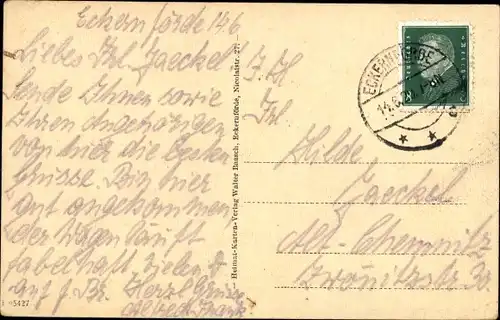 Eckernförde 14.6
Liebes Frl. Jaeckel
Sende Ihnen sowie
Ihren Angehörigen
von hier die besten
Grüsse. Bin hier
gut angekommen
der Wagen läuft
fabelhaft vielen
auf Herzl Grüsse
Frank
1 5427
Heimat-Karten-Verlag Walter Baasch, Eckernförde, Nicolaistr. 27
ECKERNFÖRDE
14.6.
Frl
Hilde
Jaeckel
Alt-Chemnitz
Zwönitzstr.